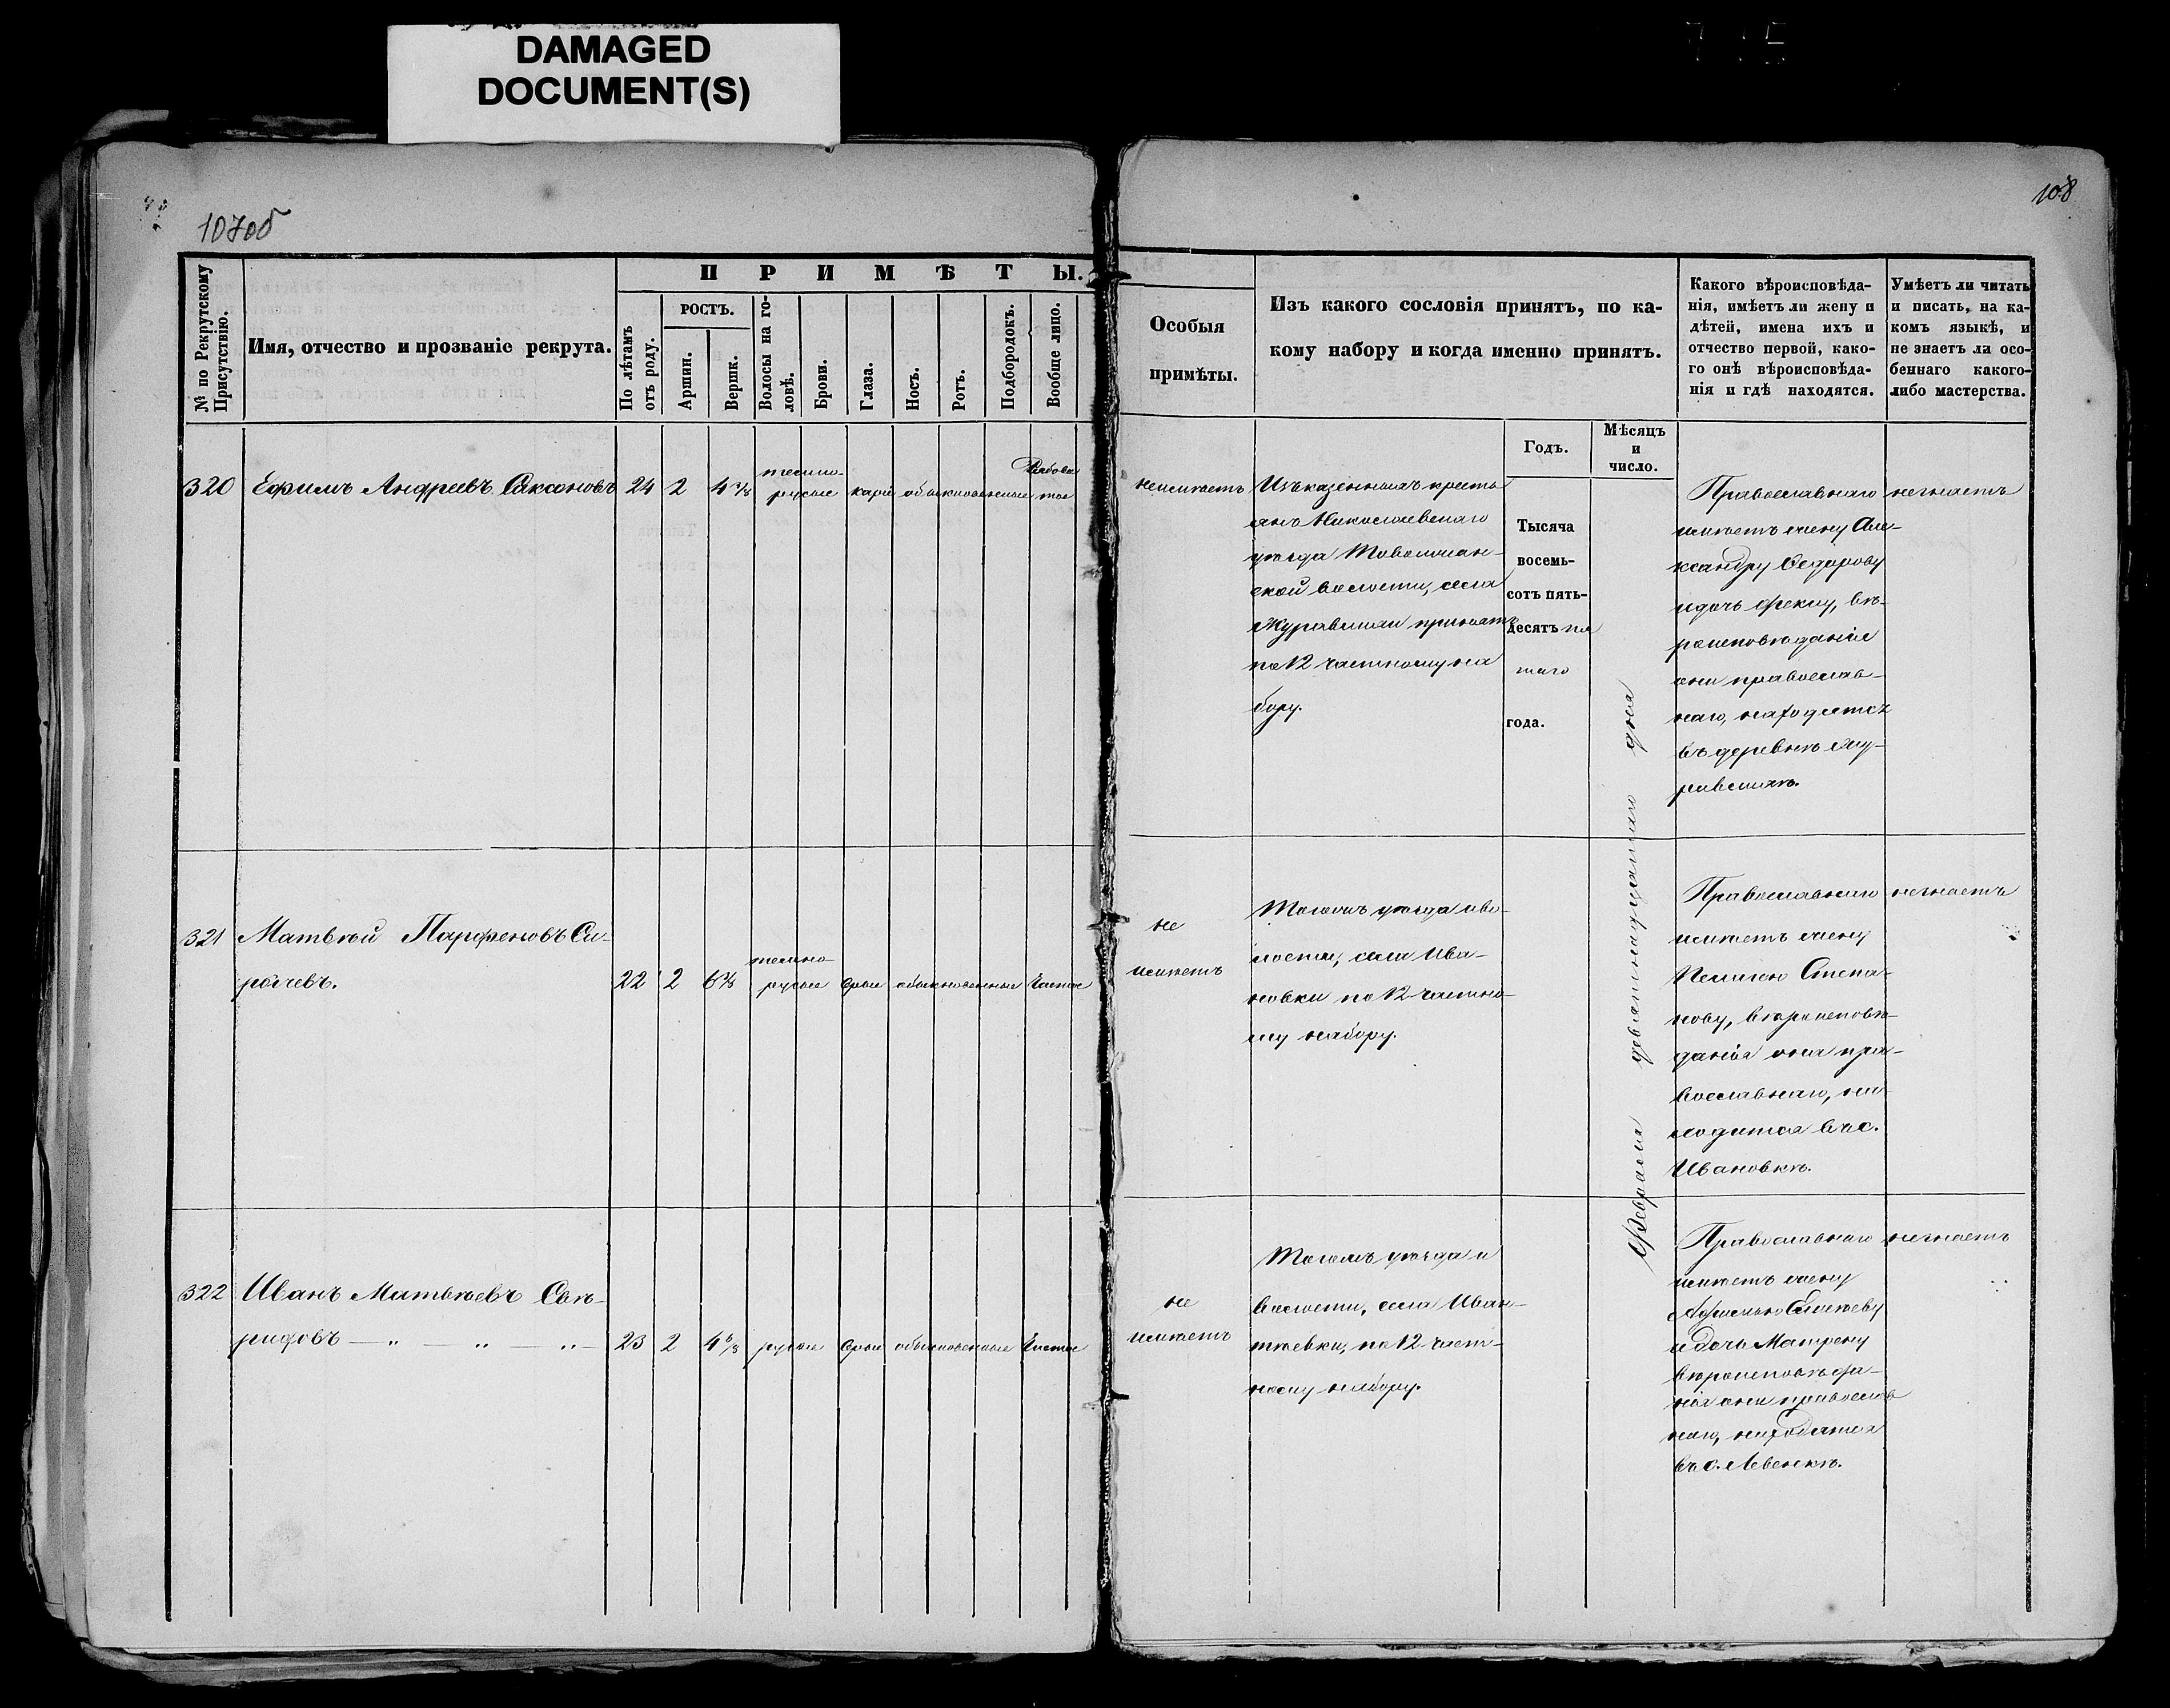 DAMAGED
DOCUMENT(S)
107об
№ по Рекрутскому
Присутствію.
Имя, отчество и прозваніе рекрута.
ПРИМѢТЫ.
По лѣтамъ
отъ роду.
РОСТЪ.
Аршин.
Вершк.
Волосы на го-
ловѣ.
Брови.
Глаза.
Носъ.
Ротъ.
Подбородокъ.
Вообще лицо.
320 Ефимъ Андреевъ Саксоновъ 24 2 4 темно-
русые карие обыкновенные Рябова
тое
321 Матвѣй Парфеновъ Си-
рачевъ. 22 2 темно-
русые серые обыкновенные Чистое
322 Иванъ Матвѣевъ Свѣ-
ридовъ — „ — „ — „ — 23 2 4 6/8 русые серые обыкновенные Чистое
108
Особыя
примѣты.
Изъ какого сословія принятъ, по ка-
кому набору и когда именно принятъ.
Какого вѣроисповѣда-
нія, имѣетъ ли жену и
дѣтей, имена ихъ и
отчество первой, како-
го онѣ вѣроисповѣда-
нія и гдѣ находятся.
Умѣетъ ли читать
и писать, на ка-
комъ языкѣ, и
не знаетъ ли осо-
беннаго какого-
либо мастерства.
Годъ.
Мѣсяцъ
и
число.
неимѣетъ
Изъ казенныхъ кресть
янъ Николаевскаго
уѣзда
ской волости, села
Журавлихи принятъ
по 12 частному на
бору.
Тысяча
восемь-
сотъ пять-
десятъ пя
таго
года.
Февраля девятнадцатаго дня
Православнаго
имѣетъ жену Але-
ксандру Федорову
и дочь Феклу, вѣ-
роисповѣданія
они православ-
наго, находятся
въ деревнѣ Жу-
равлихѣ.
незнаетъ
не
имѣетъ
Тогожъ уѣзда и во-
лости, села Ива-
новки по 12 частно-
му набору.
Православнаго
имѣетъ жену
Пелагею Степа-
нову, вѣроисповѣ-
данія она пра-
вославнаго, на-
ходится въ с.
Ивановкѣ.
незнаетъ
не
имѣетъ
Тогожъ уѣзда и
волости, села Иван-
тѣевки, по 12 част-
ному набору.
Православнаго
имѣетъ жену
и дочь Матрену
вѣроисповѣда-
нія они православ
наго, находятся
въ с.
незнаетъ